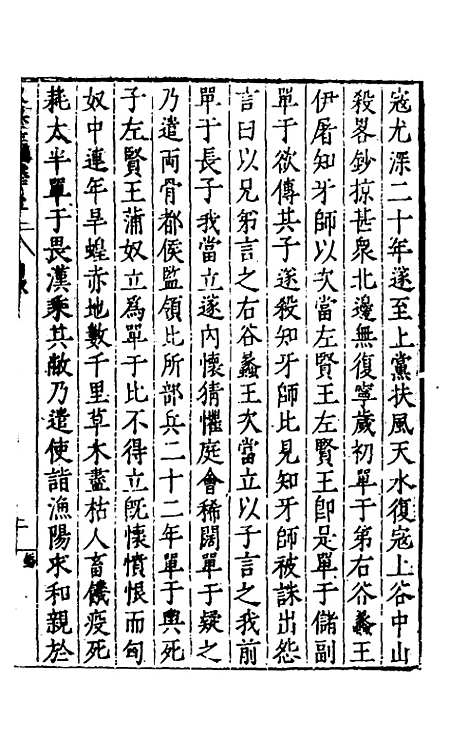 寇尤深二十年遂至上黨扶風天水復寇上谷中山
殺畧鈔掠甚衆北邊無復寧歲初單于第右谷蠡王
伊屠知牙師以次當左賢王左賢王即是單于儲副
單于欲傳其子遂殺知牙師比見知牙師被誅出怨
言曰以兄弟言之右谷蠡王次當立以子言之我前
單于長子我當立遂內懷猜懼庭會稀闊單于疑之
乃遣兩骨都侯監領比所部兵二十二年單于輿死
子左賢王蒲奴立爲單于比不得立既懷憤恨而匈
奴中連年旱蝗赤地數千里草木盡枯人畜饑疫死
耗太半單于畏漢乘其敝乃遣使詣漁陽求和親於